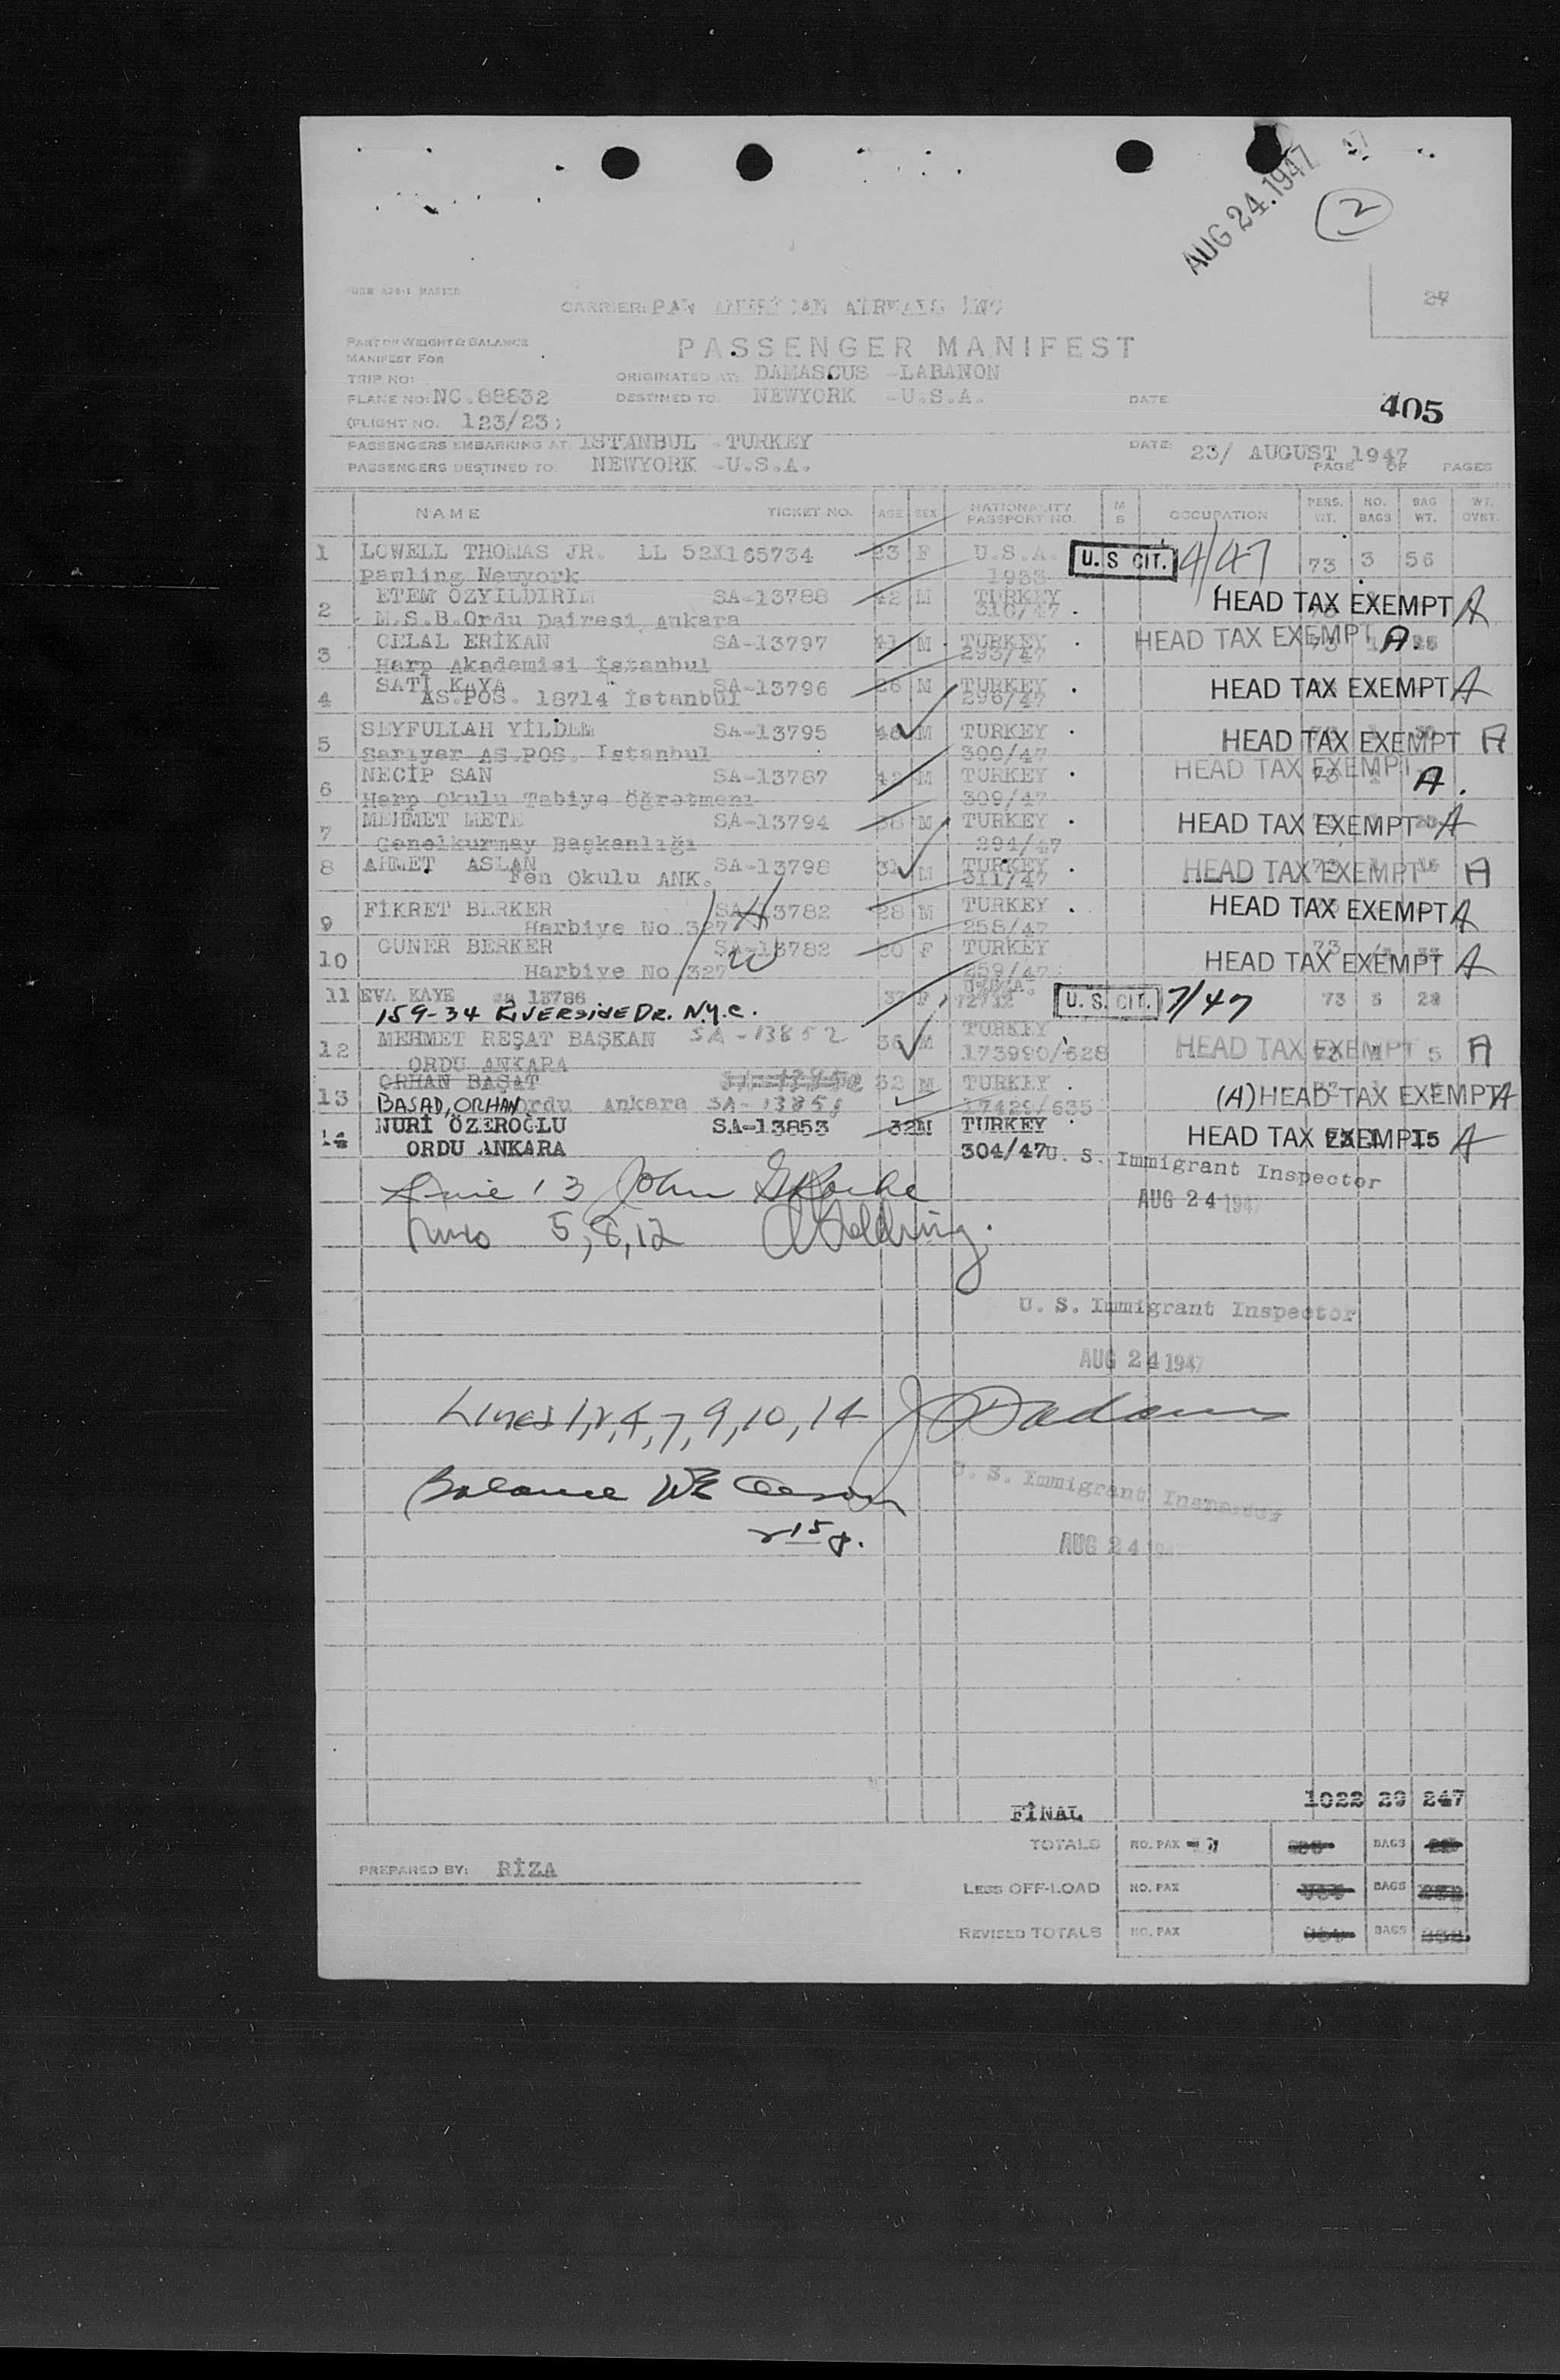 AUG 24.1947
2
FORM A28-1 MASTER
CARRIER: PAN AMERICAN AIRWAYS INC
PART OF WEIGHT & BALANCE
MANIFEST FOR
PASSENGER MANIFEST
TRIP NO:
ORIGINATED AT: DAMASCUS -LABANON
PLANE NO: NC.88832
DESTINED TO: NEWYORK -U.S.A.
DATE
405
(FLIGHT NO. 123/23)
PASSENGERS EMBARKING AT: ISTANBUL -TURKEY
DATE: 23/ AUGUST 1947
PASSENGERS DESTINED TO: NEWYORK -U.S.A.
PAGE OF PAGES
NAME TICKET NO. AGE SEX NATIONALITY PASSPORT NO. M S OCCUPATION PERS. WT. NO. BAGS BAG WT. WT. OVNT.
1 LOWELL THOMAS JR. LL 52X165734 23 F U.S.A. U.S CIT. 4/47 73 3 56
Pawling Newyork 1953
2 ETEM ÖZYILDIRIM SA-13788 42 M TURKEY HEAD TAX EXEMPT A
M.S.B.Ordu Dairesi Ankara 310/47
3 CELAL ERİKAN SA-13797 41 M TURKEY HEAD TAX EXEMPT A.
Harp Akademisi İstanbul 295/47
4 SATİ KAYA SA-13796 26 M TURKEY HEAD TAX EXEMPT A
AS.POS. 18714 İstanbul 296/47
5 SEYFULLAH YİLDEM SA-13795 46 M TURKEY HEAD TAX EXEMPT A
Sarıyer AS.POS. Istanbul 300/47
6 NECİP SAN SA-13787 42 M TURKEY HEAD TAX EXEMPT A.
Harp Okulu Tabiye Öğretmeni 309/47
7 MEHMET METE SA-13794 38 M TURKEY HEAD TAX EXEMPT A
Genelkurmay Başkanlığı 294/47
8 AHMET ASLAN SA-13798 31 M TURKEY HEAD TAX EXEMPT A
Fen Okulu ANK. 311/47
9 FİKRET BERKER SA-13782 H 28 M TURKEY HEAD TAX EXEMPT A
Harbiye No.327 258/47
10 GUNER BERKER SA-13782 W 20 F TURKEY HEAD TAX EXEMPT A
Harbiye No 327 259/47
11 EVA KAYE sa 13786 37 F U.S.A. 72712 U.S. CIT. 7/47 73 3 28
159-34 RIVERSIDE DR. N.Y.C.
12 MEHMET REŞAT BAŞKAN SA-13852 36 M TURKEY HEAD TAX EXEMPT 5 A
ORDU ANKARA 173990/628
13 ORHAN BAŞAT 32 M TURKEY (A) HEAD TAX EXEMPT A
BASAD, ORHAN Ordu Ankara SA-13851 17429/635
14 NURİ ÖZEROĞLU SA-13853 32 M TURKEY HEAD TAX EXEMPT 15 A
ORDU ANKARA 304/47
U. S. Immigrant Inspector
AUG 24 1947
Line 13 John
Lines 5,8,12
U. S. Immigrant Inspector
AUG 24 1947
Lines 1,2,4,7,9,10,14 J Adams
U. S. Immigrant Inspector
Balance
AUG 24
FİNAL 1022 29 247
TOTALS NO. PAX BAGS
PREPARED BY: RİZA
LESS OFF-LOAD NO. PAX BAGS
REVISED TOTALS NO. PAX BAGS